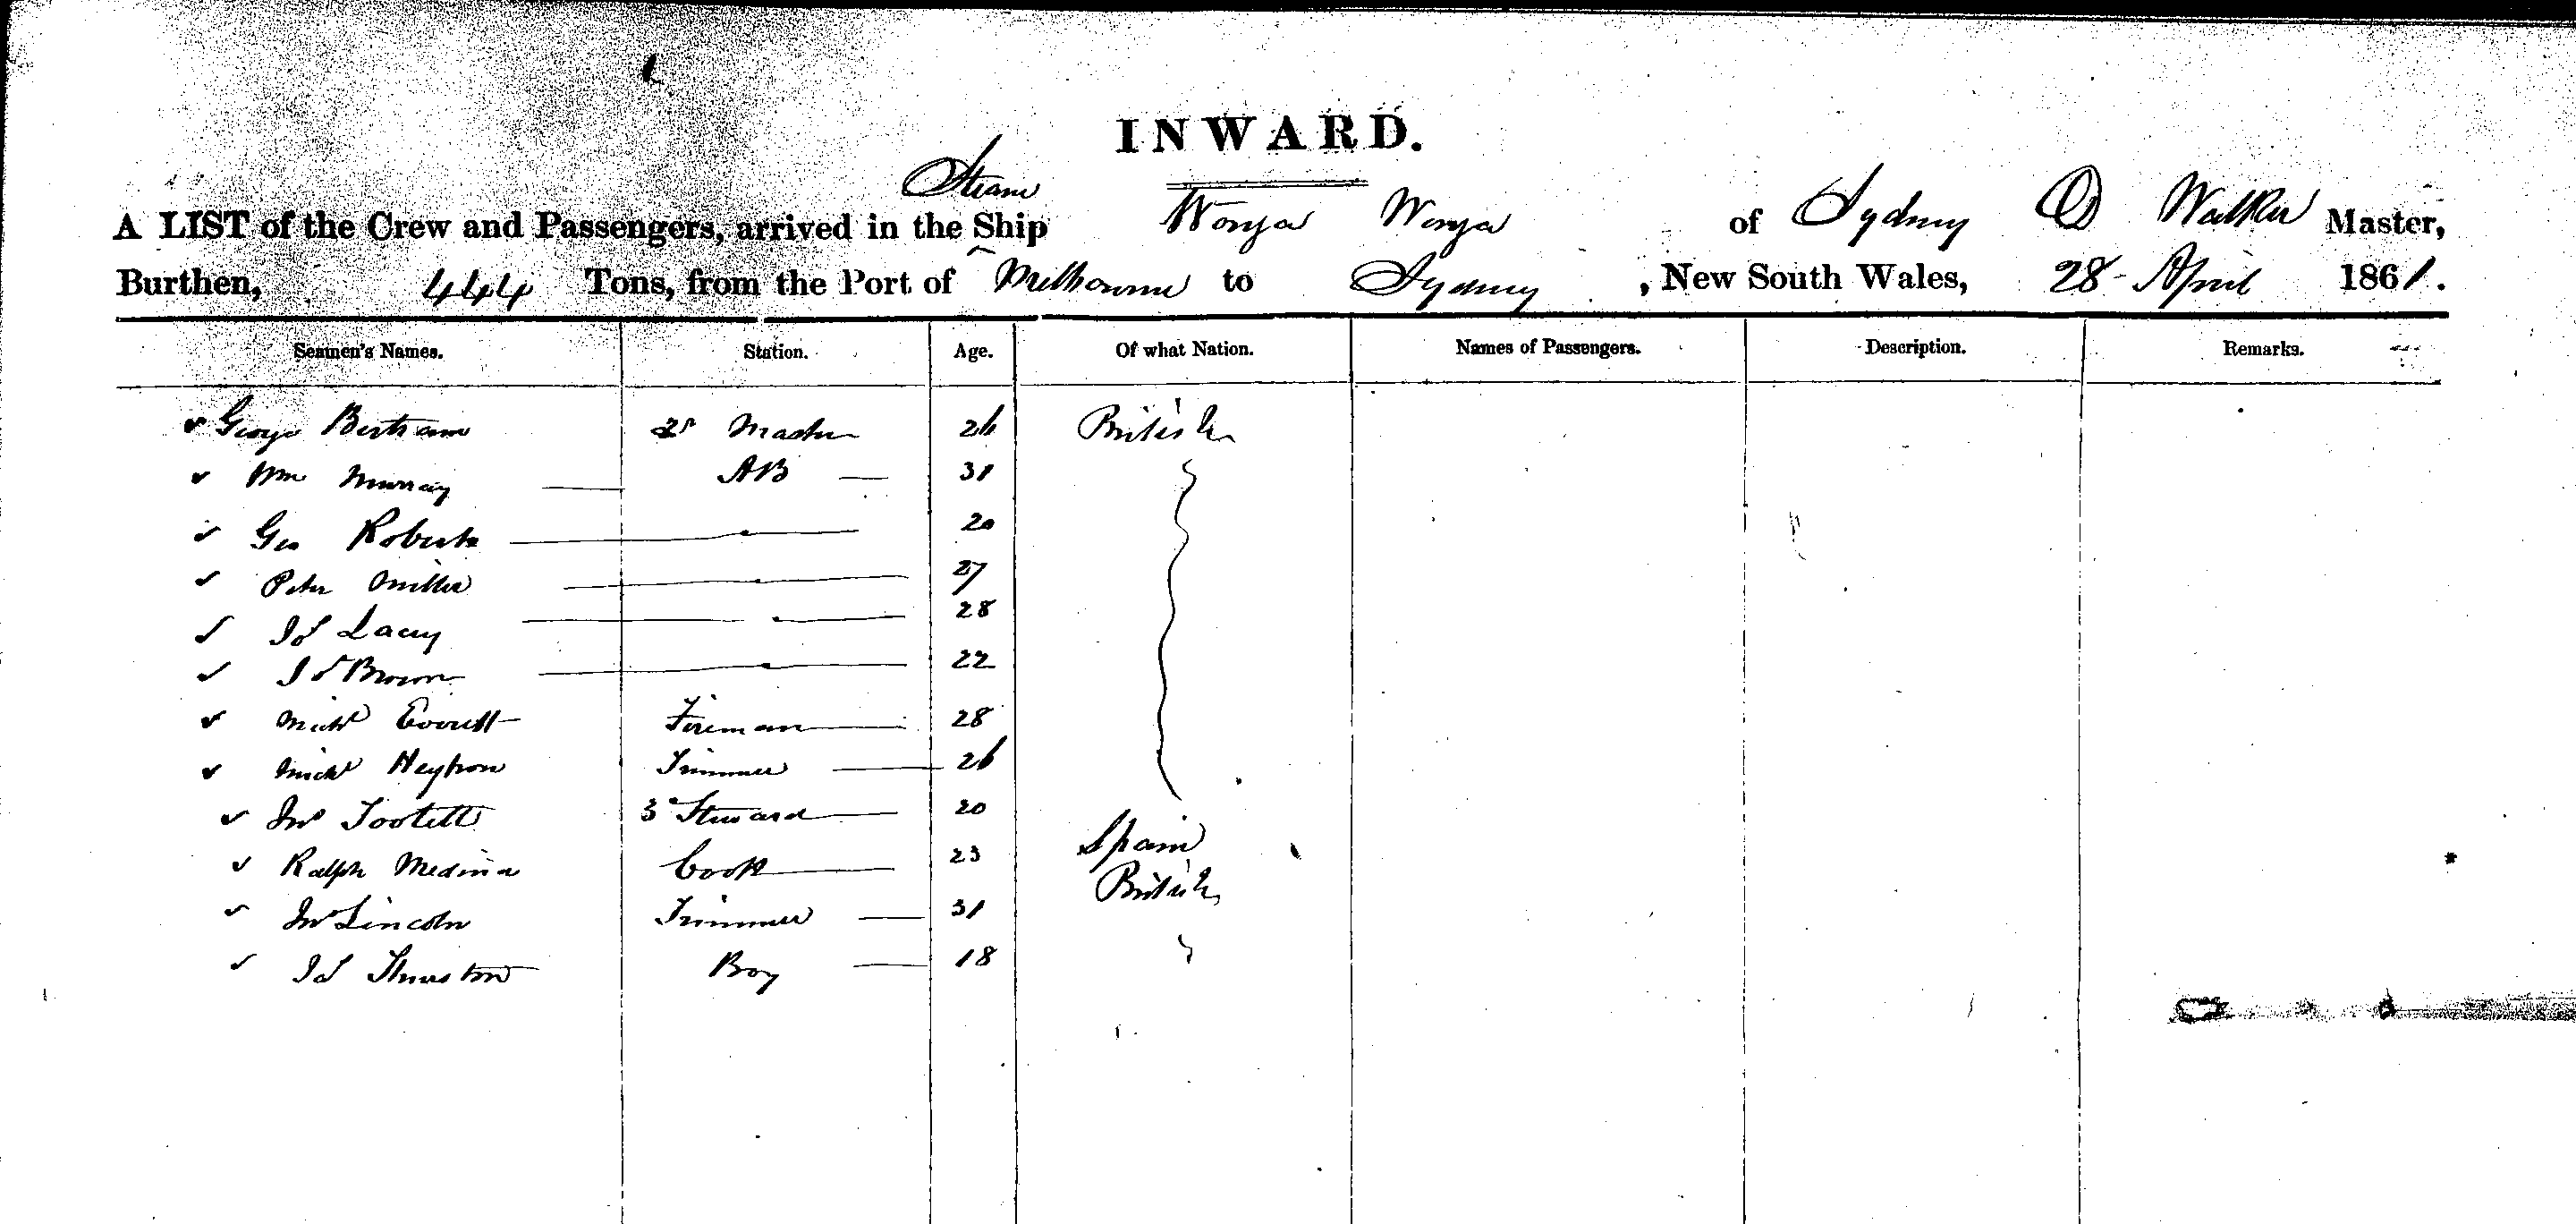 INWARD.
Steam
A LIST of the Crew and Passengers, arrived in the Ship Wonga Wonga of Sydney D Walker Master,
Burthen, 444 Tons, from the Port of Melbourne to Sydney, New South Wales, 28 - April 1861.
Seamen's Names. Station. Age. Of what Nation. Names of Passengers. Description. Remarks.
George Bertram 2d Master 26 British
Wm Murray — AB — 31
Geo Roberts — 20
Peter Miller — 27
Js Lacey — 28
Js Brown — 22
Michl Everett Fireman — 28
Michl Heytron Trimmer — 26
Jno Tootell 3 Steward — 20
Ralph Medina Cook — 23 Spain
Jno Lincoln Trimmer — 31 British
Js Thurston Boy — 18